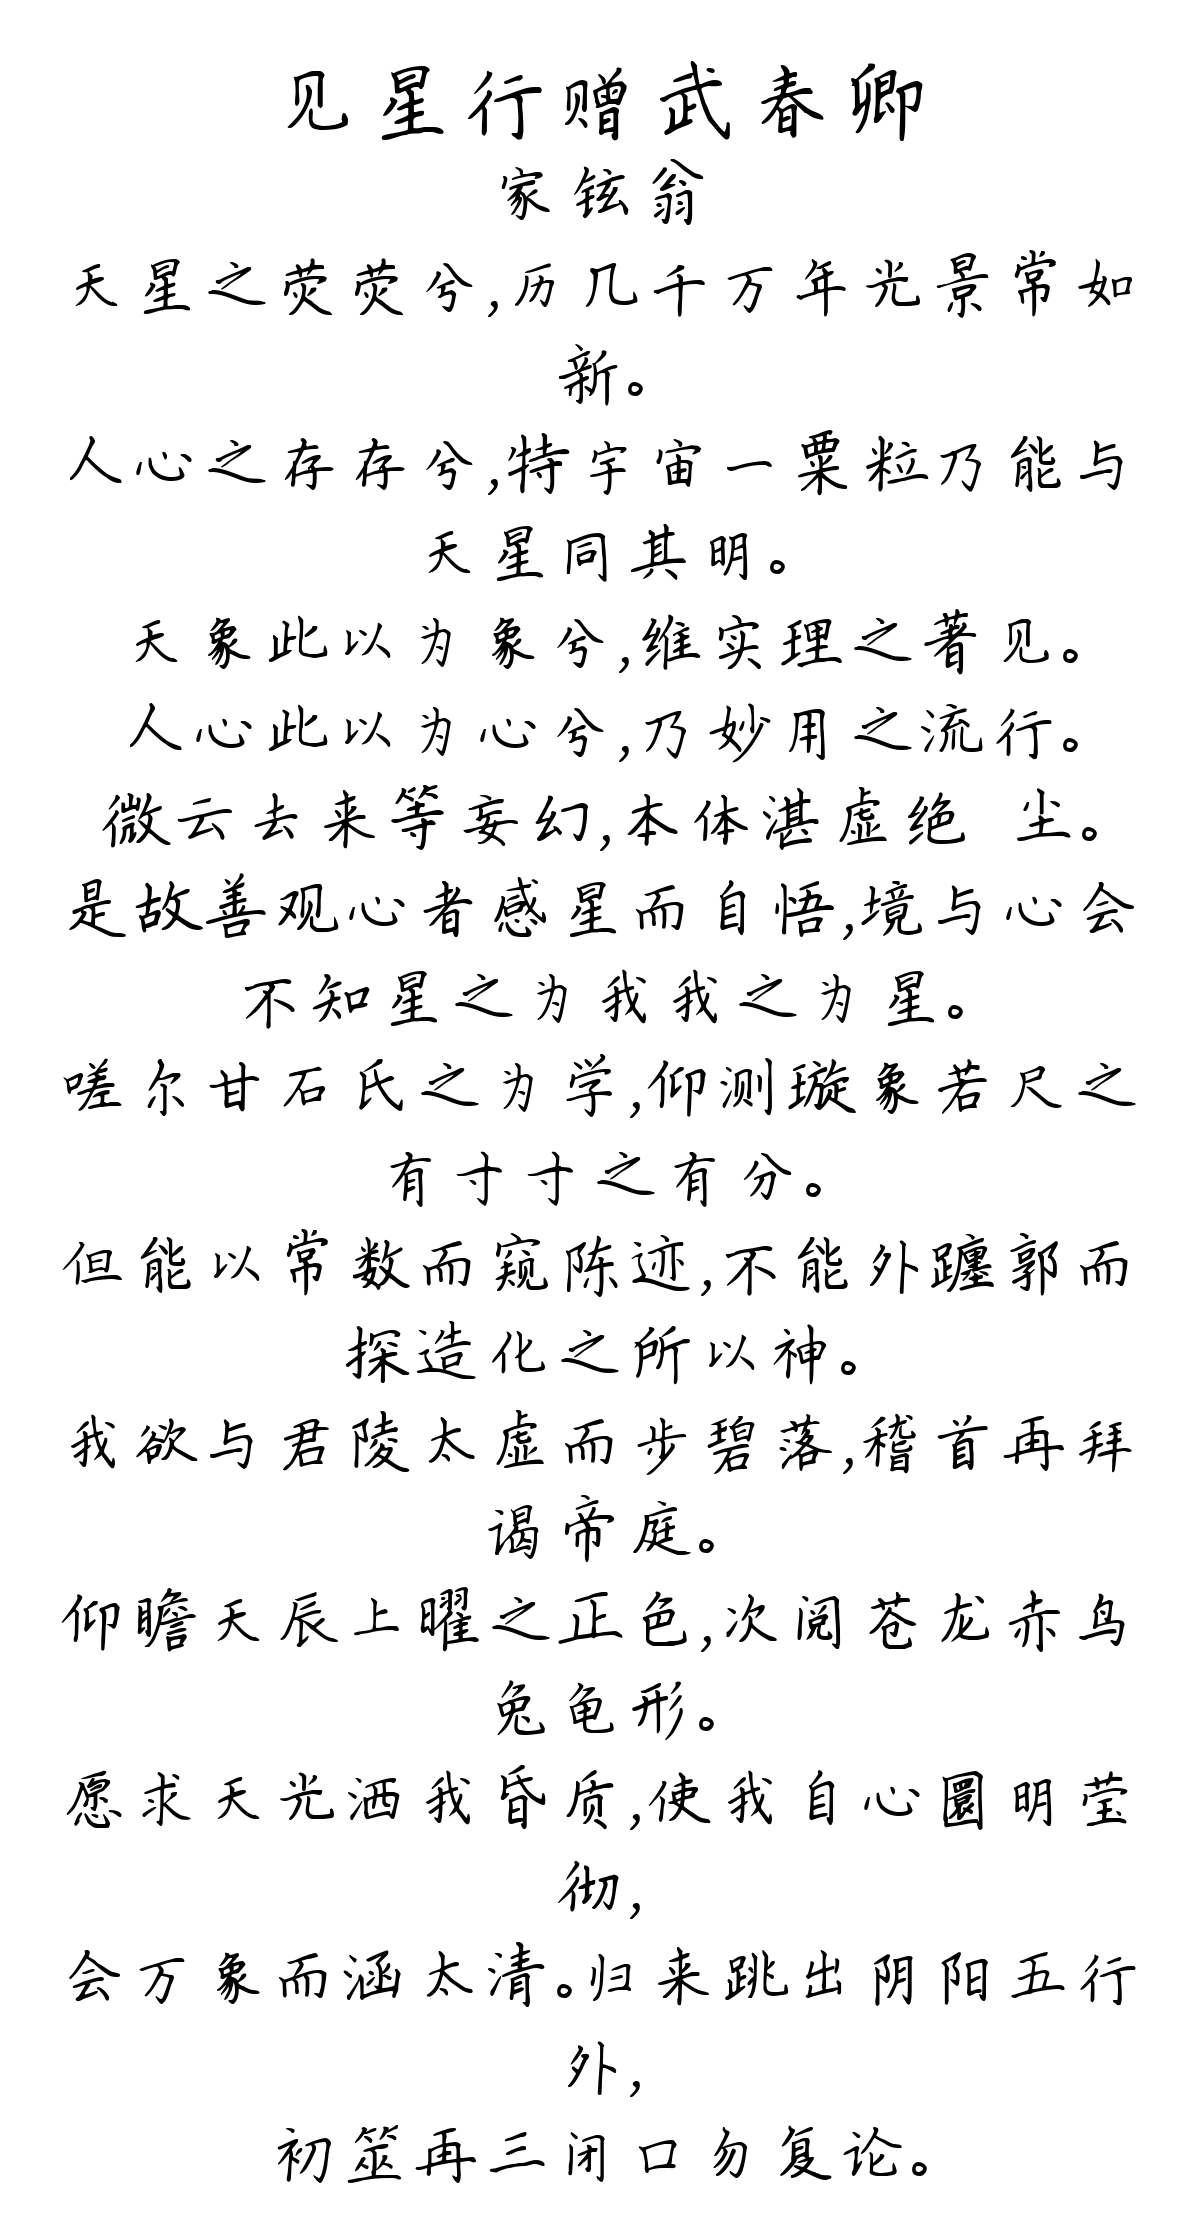 见星行赠武春卿
家铉翁
天星之荧荧兮,历几千万年光景常如
新。
人心之存存兮,特宇宙一粟粒乃能与
天星同其明。
天象此以为象兮,维实理之著见。
人心此以为心兮,乃妙用之流行。
微云去来等妄幻,本体湛虚绝 尘。
是故善观心者感星而自悟,境与心会
不知星之为我我之为星。
嗟尔甘石氏之为学,仰测璇象若尺之
有寸寸之有分。
但能以常数而窥陈迹,不能外躔郭而
探造化之所以神。
我欲与君陵太虚而步碧落,稽首再拜
谒帝庭。
仰瞻天辰上曜之正色,次阅苍龙赤鸟
兔龟形。
愿求天光洒我昏质,使我自心圜明莹
彻,
会万象而涵太清。归来跳出阴阳五行
外,
初筮再三闭口勿复论。